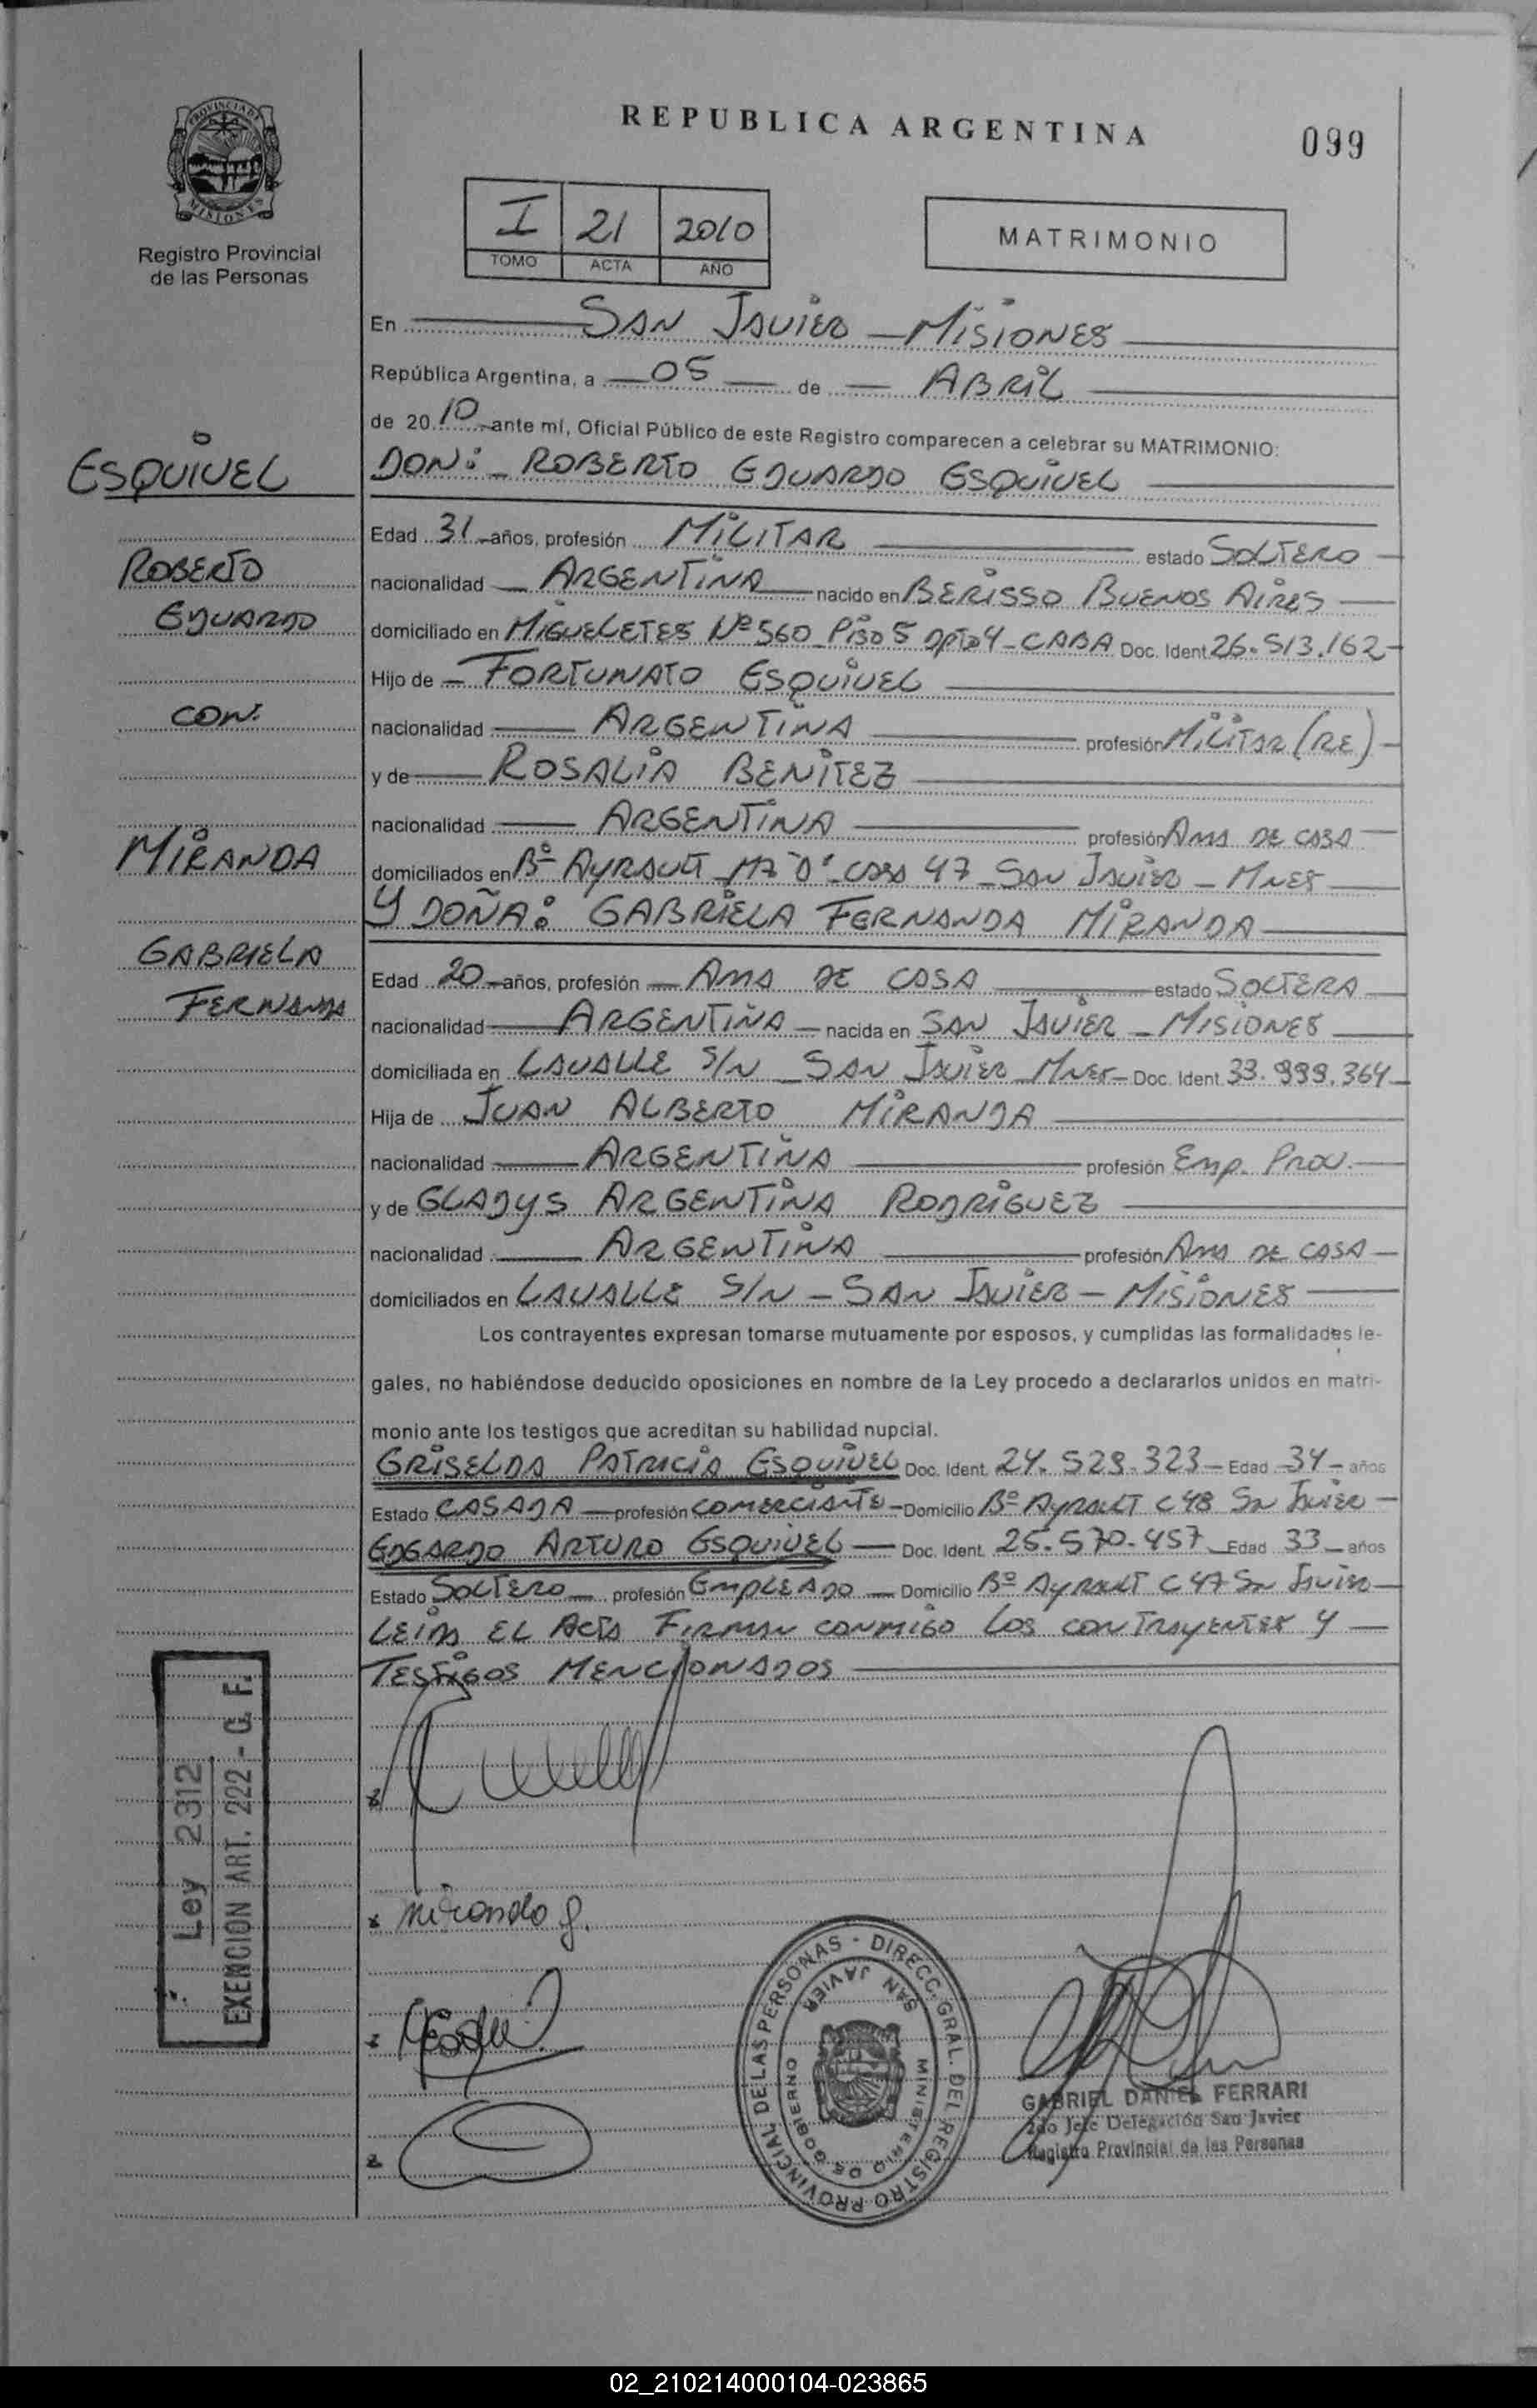 REPUBLICA ARGENTINA
099
PROVINCIA DE
MISIONES
Registro Provincial
de las Personas
I 21 2010
TOMO ACTA AÑO
MATRIMONIO
En SAN JAVIER - MISIONES
República Argentina, a 05 de ABRIL
de 2010 ante mí, Oficial Público de este Registro comparecen a celebrar su MATRIMONIO:
DON: ROBERTO EDUARDO ESQUIVEL
Edad 31 años, profesión MILITAR estado SOLTERO
nacionalidad ARGENTINA nacido en BERISSO BUENOS AIRES
domiciliado en MIGUELETES Nº 560 PISO 5 DPTO 4 - CABA Doc. Ident. 26.513.162
Hijo de FORTUNATO ESQUIVEL
nacionalidad ARGENTINA profesión MILITAR (RE)
y de ROSALIA BENITEZ
nacionalidad ARGENTINA profesión AMA DE CASA
domiciliados en Bº AYRAULT MZ "D" CASA 47 - SAN JAVIER - MNES
Y DOÑA: GABRIELA FERNANDA MIRANDA
Edad 20 años, profesión AMA DE CASA estado SOLTERA
nacionalidad ARGENTINA nacida en SAN JAVIER - MISIONES
domiciliada en LAVALLE S/N - SAN JAVIER MNES - Doc. Ident. 33.999.364
Hija de JUAN ALBERTO MIRANDA
nacionalidad ARGENTINA profesión EMP. PROV.
y de GLADYS ARGENTINA RODRIGUEZ
nacionalidad ARGENTINA profesión AMA DE CASA
domiciliados en LAVALLE S/N - SAN JAVIER - MISIONES
Los contrayentes expresan tomarse mutuamente por esposos, y cumplidas las formalidades le-
gales, no habiéndose deducido oposiciones en nombre de la Ley procedo a declararlos unidos en matri-
monio ante los testigos que acreditan su habilidad nupcial.
GRISELDA PATRICIA ESQUIVEL Doc. Ident. 24.529.323 - Edad 34 - años
Estado CASADA profesión COMERCIANTE - Domicilio Bº AYRAULT C 48 SN JAVIER
EDGARDO ARTURO ESQUIVEL Doc. Ident. 25.570.457 Edad 33 años
Estado SOLTERO profesión EMPLEADO Domicilio Bº AYRAULT C 47 SN JAVIER
LEIDA EL ACTA FIRMAN CONMIGO LOS CONTRAYENTES Y
TESTIGOS MENCIONADOS
ESQUIVEL
ROBERTO
EDUARDO
CON:
MIRANDA
GABRIELA
FERNANDA
Ley 2312
EXENCION ART. 222 - C. F.
Miranda g.
REGISTRO PROVINCIAL DE LAS PERSONAS - DIRECC. GRAL. DEL
SAN JAVIER
MINISTERIO DE GOBIERNO
GABRIEL DANIEL FERRARI
2do Jefe Delegación San Javier
Registro Provincial de las Personas
02_210214000104-023865